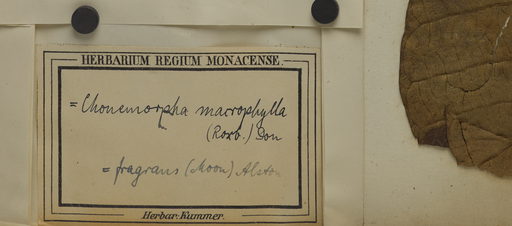 HERBARIUM REGIUM MONACENSE.
= Chonemorpha macrophylla
(Roxb.) Don
= fragrans (Moon) Alston
Herbar: Kummer.